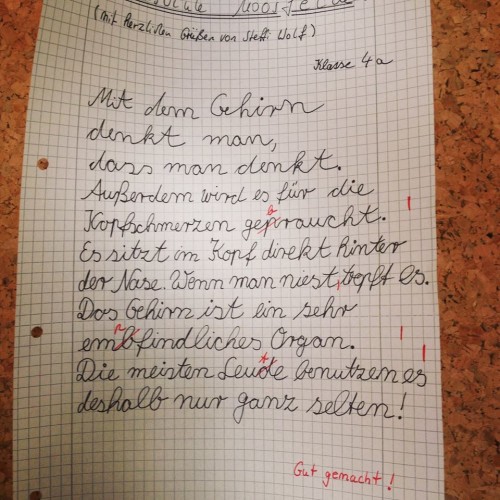 (mit Herzlichen Grüßen von Steffi Wolf)
Klasse 4a
Mit dem Gehirn
denkt man,
dass man denkt.
Außerdem wird es für die
b
Kopfschmerzen gepraucht.
Es sitzt im Kopf direkt hinter
der Nase. Wenn man niest, tropft es.
Das Gehirn ist ein sehr
p
embfindliches Organ.
t
Die meisten Leude benutzen es
deshalb nur ganz selten!
Gut gemacht!